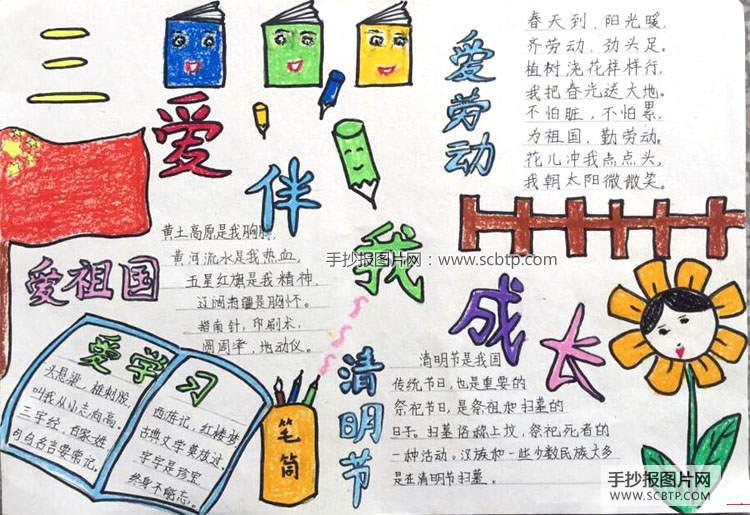 三
爱
伴
我
成
长
爱劳动
春天到,阳光暖,
齐劳动,劲头足。
植树浇花样样行,
我把春光送大地。
不怕脏,不怕累,
为祖国,勤劳动。
花儿冲我点点头,
我朝太阳微微笑。
爱祖国
黄土高原是我胸膛,
黄河流水是我热血,
五星红旗是我精神,
辽阔海疆是胸怀。
指南针,印刷术,
圆周率,地动仪。
手抄报图片网:www.scbtp.com
爱学习
头悬梁,锥刺股,
叫我从小志向高。
三字经,百家姓
句句名言要常记。
西游记,红楼梦
古典文学莫放过,
字字是珍宝
终身不能忘。
笔筒
清明节
清明节是我国
传统节日,也是重要的
祭祀节日,是祭祖和扫墓的
日子。扫墓俗称上坟,祭祀死者的
一种活动。汉族和一些少数民族大多
是在清明节扫墓。
手抄报图片网
WWW.SCBTP.COM